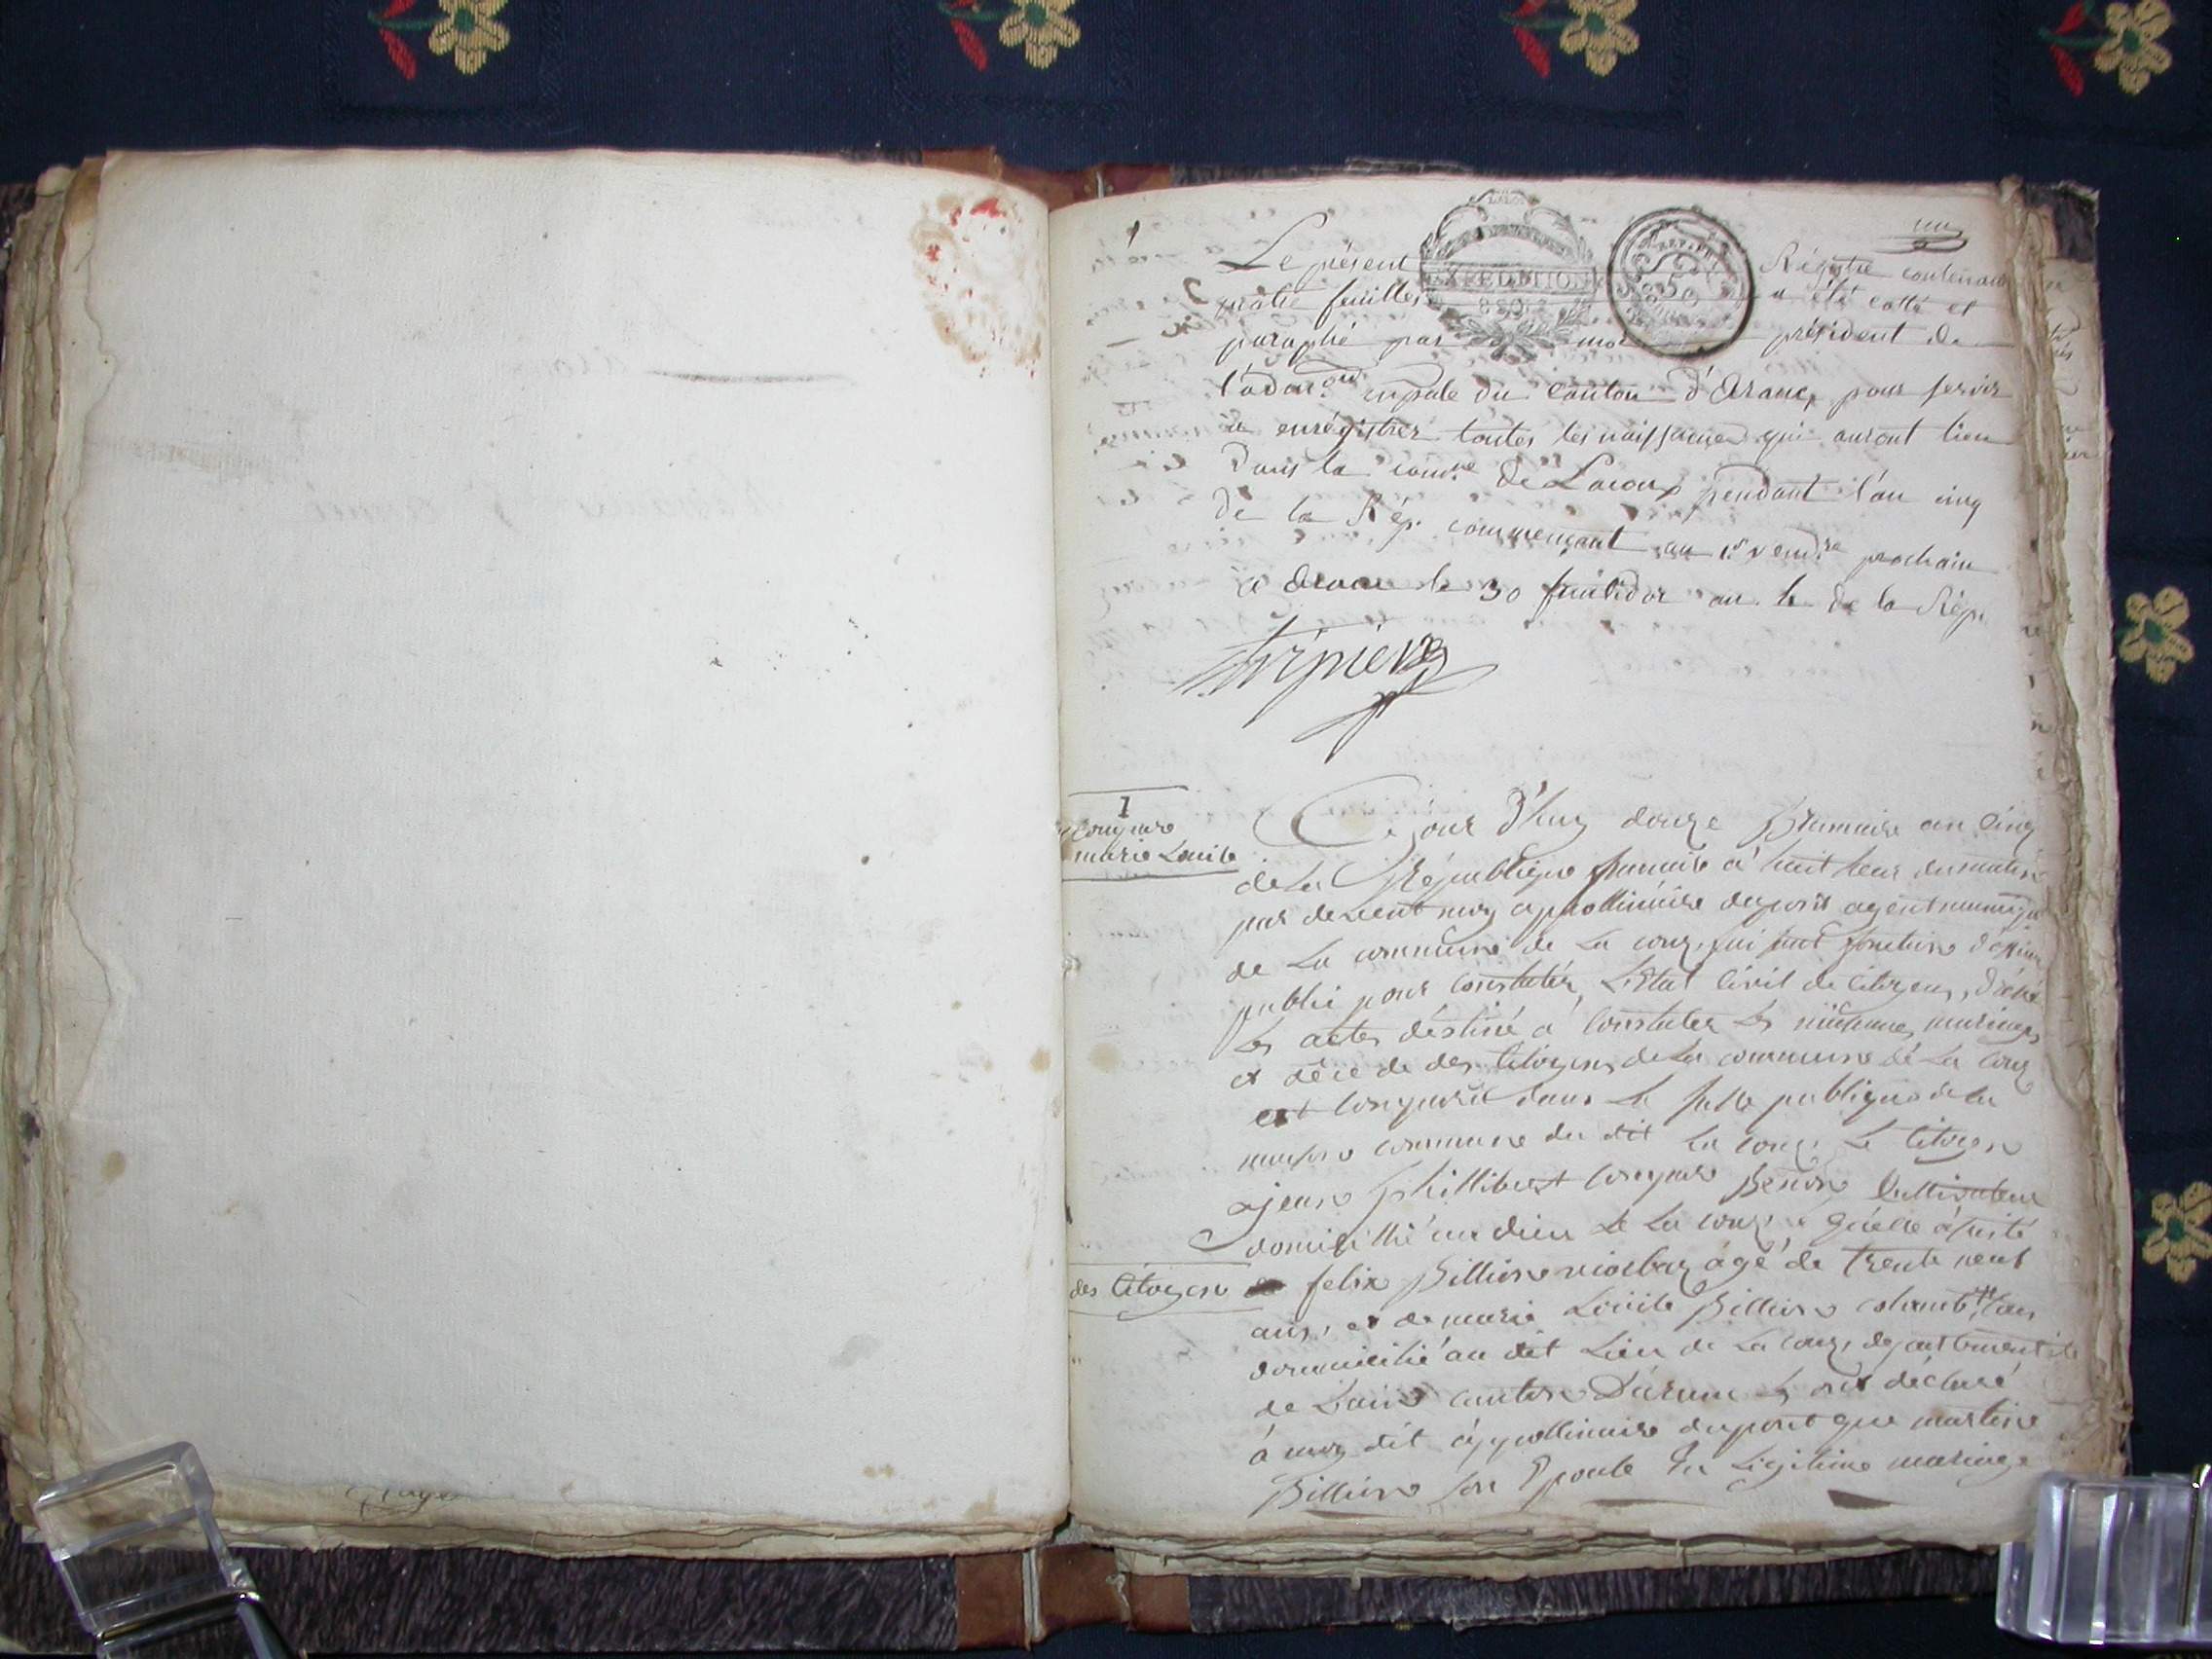 un
Le présent Régistre contenant
quatre feuilles a été cotté et
paraphé par moi président de
l'adon mpale du Canton d'Aranc, pour servir
a enrégistrer toutes les naissances qui auront lieu
Dans la comne de Lacoux pendant l'an cinq
De la Rép. commençant au 1er vendre prochain
a Aranc le 30 fructidor an 4 de la Rép.
EXPEDITION
1
Compare
marie Louise
Ce jour d'huy douze Brumaire an Cinq
de La République francaise a huit heur du matin
par devent moy appollinaire dupont agent municipal
de La commune de La coux, fait fonction d'officier
public pour constater L'Etat Civil de Citoyens,
Les actes destiné a Constater Les naissance, mariages
et décé de des Citoyens de La commune de La Coux
est comparu dans La salle publique de La
maison commune du dit La coux, Le Citoyen
jean phillibert Compare Cultivateur
domicillié au dieu de La coux,
des Citoyen felix Billion age de trente neuf
ans, et de marie Louise Billion
domicilié au dit Lieu de La coux, departement
de Lain canton Daranc Les ont déclaré
à moy dit appollinaire dupont que martine
Billion son Epouse En Légitime mariage